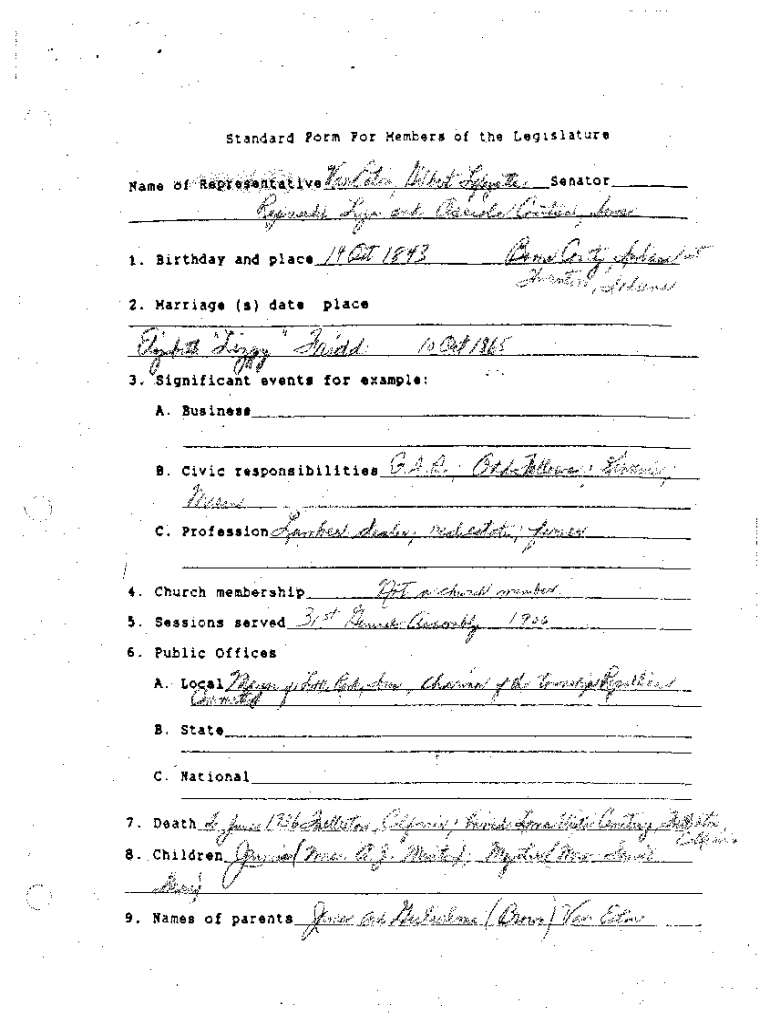 Standard Form For Members of the Legislature
Name of Representative Van Eaton, Lafayette. Senator
Represented Lyon and Osceola Counties, Iowa
1. Birthday and place 14 Oct 1843 Boone County, Indiana
Thornton, Indiana
2. Marriage (s) date place
Elizabeth "Lizzy" 10 Oct 1865
3. Significant events for example:
A. Business
B. Civic responsibilities G.A.R.; Odd Fellows;
Mason
C. Profession Lumber dealer; real estate; farmer
4. Church membership Not a church member
5. Sessions served 31st General Assembly 1906
6. Public Offices
A. Local Mayor of Little Rock, Iowa, Chairman of the Township Republican
Committee
B. State
C. National
7. Death 2 June 1936 Fullerton, California; buried Loma Vista Cemetery, Fullerton,
California
8. Children (Mrs. A. J. ); Myrtle (Mrs.
9. Names of parents James and (Brown) Van Eaton